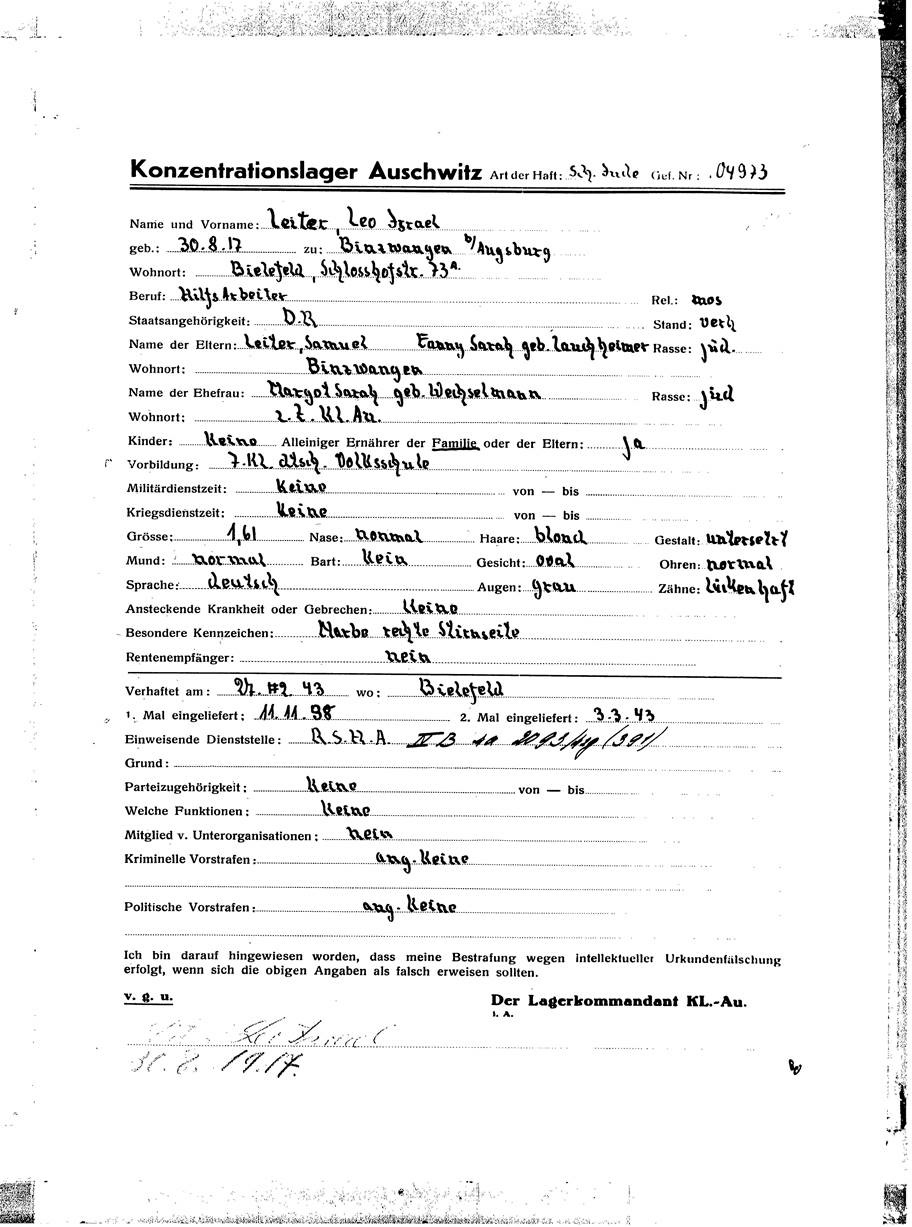 Konzentrationslager Auschwitz Art der Haft: Sch. Jude Gef. Nr: 104973
Name und Vorname: Leiter, Leo Israel
geb.: 30.8.17 zu: Binswangen b/Augsburg
Wohnort: Bielefeld, Schlosshofstr. 73a.
Beruf: Hilfsarbeiter Rel.: mos
Staatsangehörigkeit: D.R Stand: verh
Name der Eltern: Leiter, Samuel Fanny Sarah geb. Lauchheimer Rasse: jüd.
Wohnort: Binswangen
Name der Ehefrau: Margot Sarah geb. Wechselmann Rasse: jüd
Wohnort: z.Z. Kl. Au.
Kinder: Keine Alleiniger Ernährer der Familie oder der Eltern: ja
Vorbildung: 7.Kl. dtsch. Volksschule
Militärdienstzeit: Keine von — bis
Kriegsdienstzeit: Keine von — bis
Grösse: 1,61 Nase: normal Haare: blond Gestalt: untersetzt
Mund: normal Bart: Kein Gesicht: oval Ohren: normal
Sprache: deutsch Augen: grau Zähne: lückenhaft
Ansteckende Krankheit oder Gebrechen: Keine
Besondere Kennzeichen: Narbe rechte Stirnseite
Rentenempfänger: nein
Verhaftet am: 43 wo: Bielefeld
1. Mal eingeliefert: 11.11.38 2. Mal eingeliefert: 3.3.43
Einweisende Dienststelle: R.S.H.A. IV B
Grund:
Parteizugehörigkeit: Keine von — bis
Welche Funktionen: Keine
Mitglied v. Unterorganisationen: nein
Kriminelle Vorstrafen: ang. Keine
Politische Vorstrafen: ang. Keine
Ich bin darauf hingewiesen worden, dass meine Bestrafung wegen intellektueller Urkundenfälschung
erfolgt, wenn sich die obigen Angaben als falsch erweisen sollten.
v. g. u. Der Lagerkommandant KL.-Au.
I. A.
Leo Israel
30.8.1917.